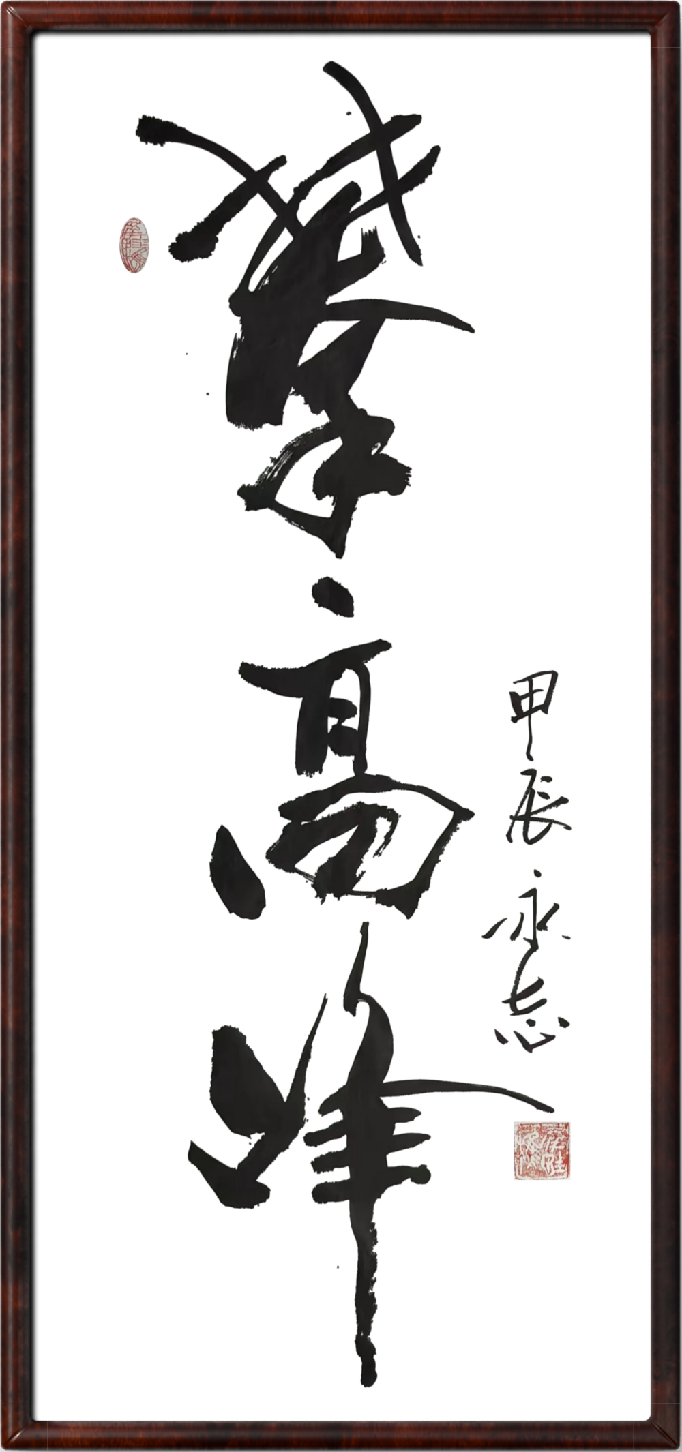 攀高峰
甲辰 永志